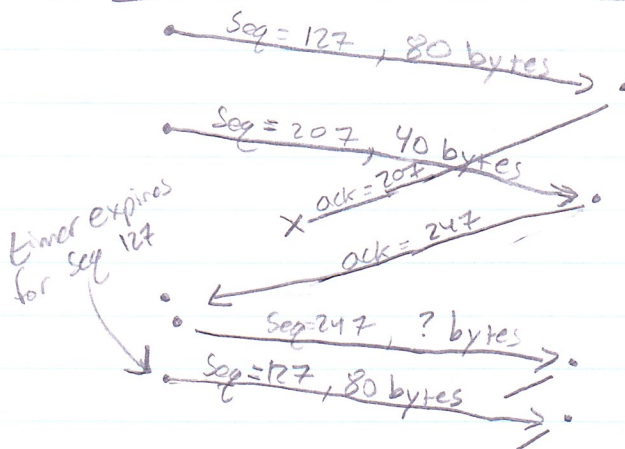 Seq = 127, 80 bytes
Seq = 207, 40 bytes
ack = 207
x
ack = 247
timer expires
for seq 127
Seq=247, ? bytes
Seq=127, 80 bytes